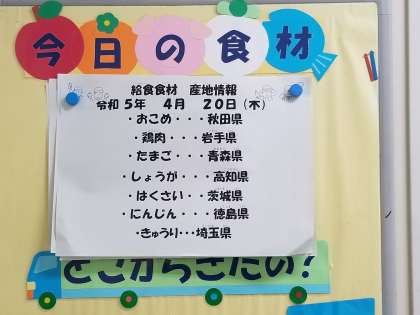 今日の食材
給食食材　産地情報
令和 5年　4月　20日（木）
・おこめ・・・秋田県
・鶏肉・・・岩手県
・たまご・・・青森県
・しょうが・・・高知県
・はくさい・・茨城県
・にんじん・・・徳島県
・きゅうり・・・埼玉県
どこからきたの？